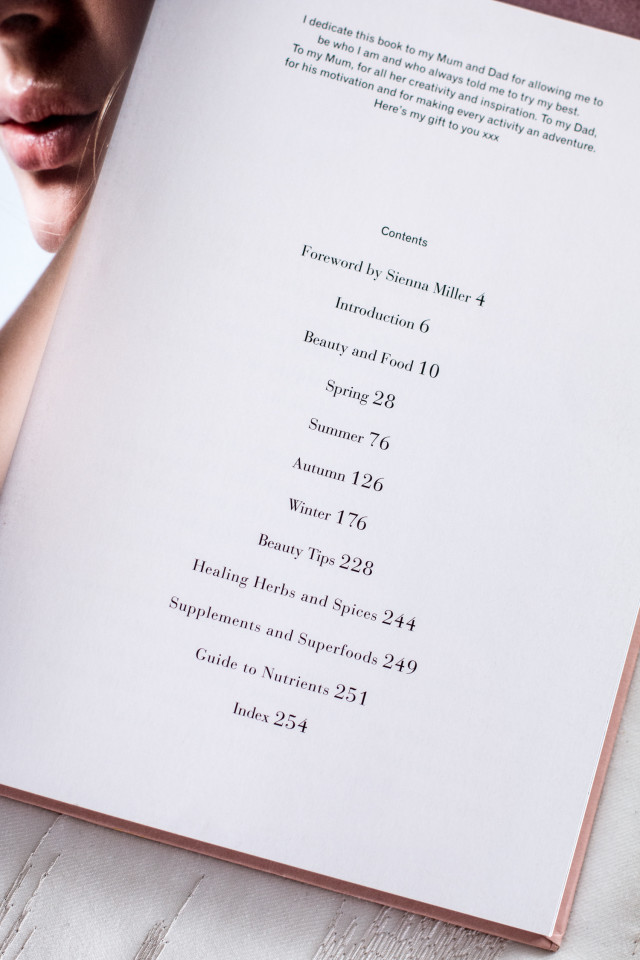 I dedicate this book to my Mum and Dad for allowing me to
be who I am and who always told me to try my best.
To my Mum, for all her creativity and inspiration. To my Dad,
for his motivation and for making every activity an adventure.
Here's my gift to you xxx
Contents
Foreword by Sienna Miller 4
Introduction 6
Beauty and Food 10
Spring 28
Summer 76
Autumn 126
Winter 176
Beauty Tips 228
Healing Herbs and Spices 244
Supplements and Superfoods 249
Guide to Nutrients 251
Index 254